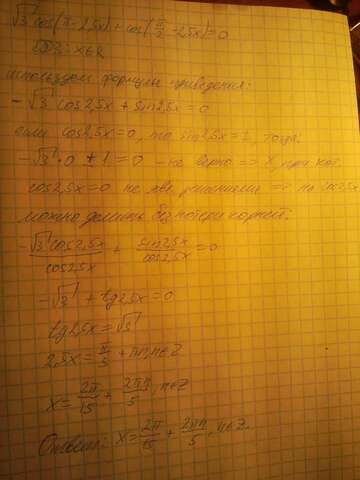 √3 cos(π-2,5x)+cos(π/2-2,5x)=0
ОДЗ: x∈R
используем формулы приведения:
-√3 cos2,5x + sin2,5x = 0
если cos2,5x=0, то sin2,5x=±1, тогда:
-√3·0 ± 1 = 0 - не верно => x, при кот.
cos2,5x=0 не явл. решением => на cos2,5x
можно делить без потери корней:
-√3 cos2,5x/cos2,5x + sin2,5x/cos2,5x = 0
-√3 + tg2,5x = 0
tg2,5x = √3
2,5x = π/3 + πn, n∈Z
x = 2π/15 + 2πn/5, n∈Z
Ответ: x = 2π/15 + 2πn/5, n∈Z.